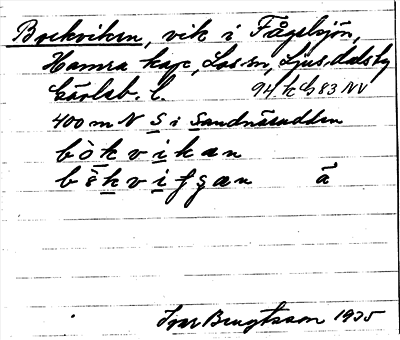 Bockviken, vik i Fågelsjön,
Hamra kap, Los sn, Ljusdalsby
Gävleb. l. 94 k h 83 NV
400 m N S i Sandnäsudden
bòkvikan
bèkvifsan å
Ivar Bengtsson 1935